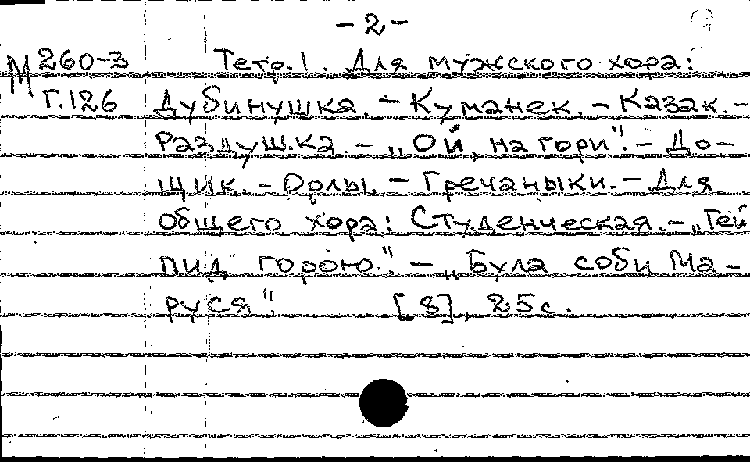 -2-
М 260-3 Тетр.1. Для мужского хора:
Г.126 Дубинушка. - Куманек. - Казак. -
Раздушка. - „Ой, на гори". - До-
щик. - Орлы. - Гречаныки. - Для
общего хора: Студенческая. - „Гей
пид горою." - „Була соби Ма-
руся". [8], 25с.